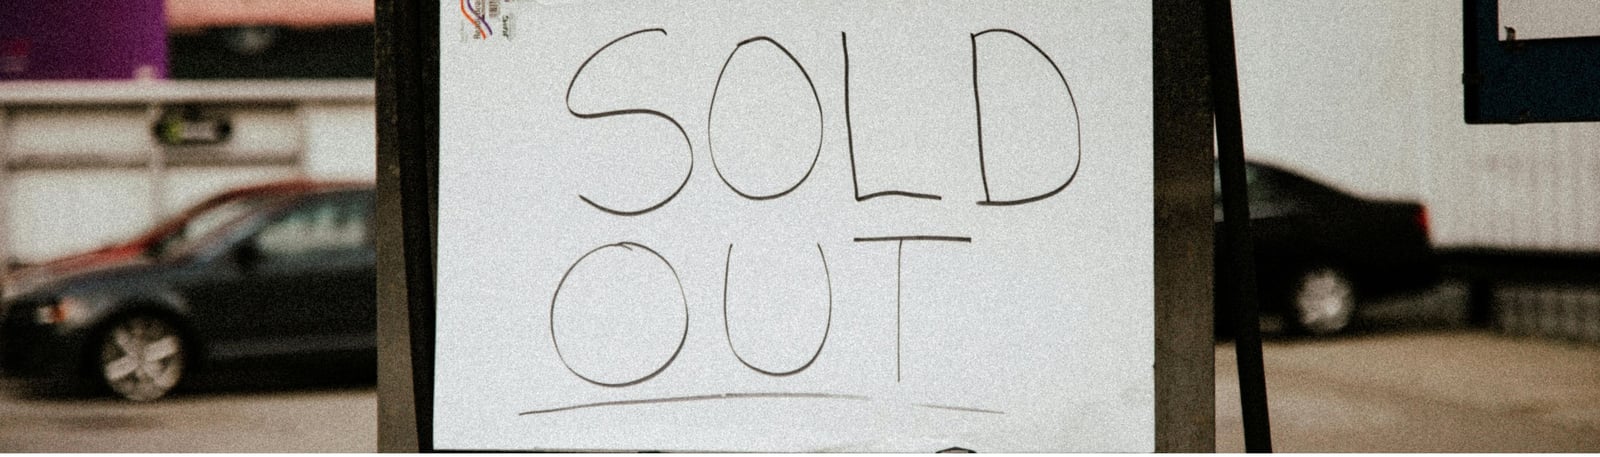 SOLD
OUT